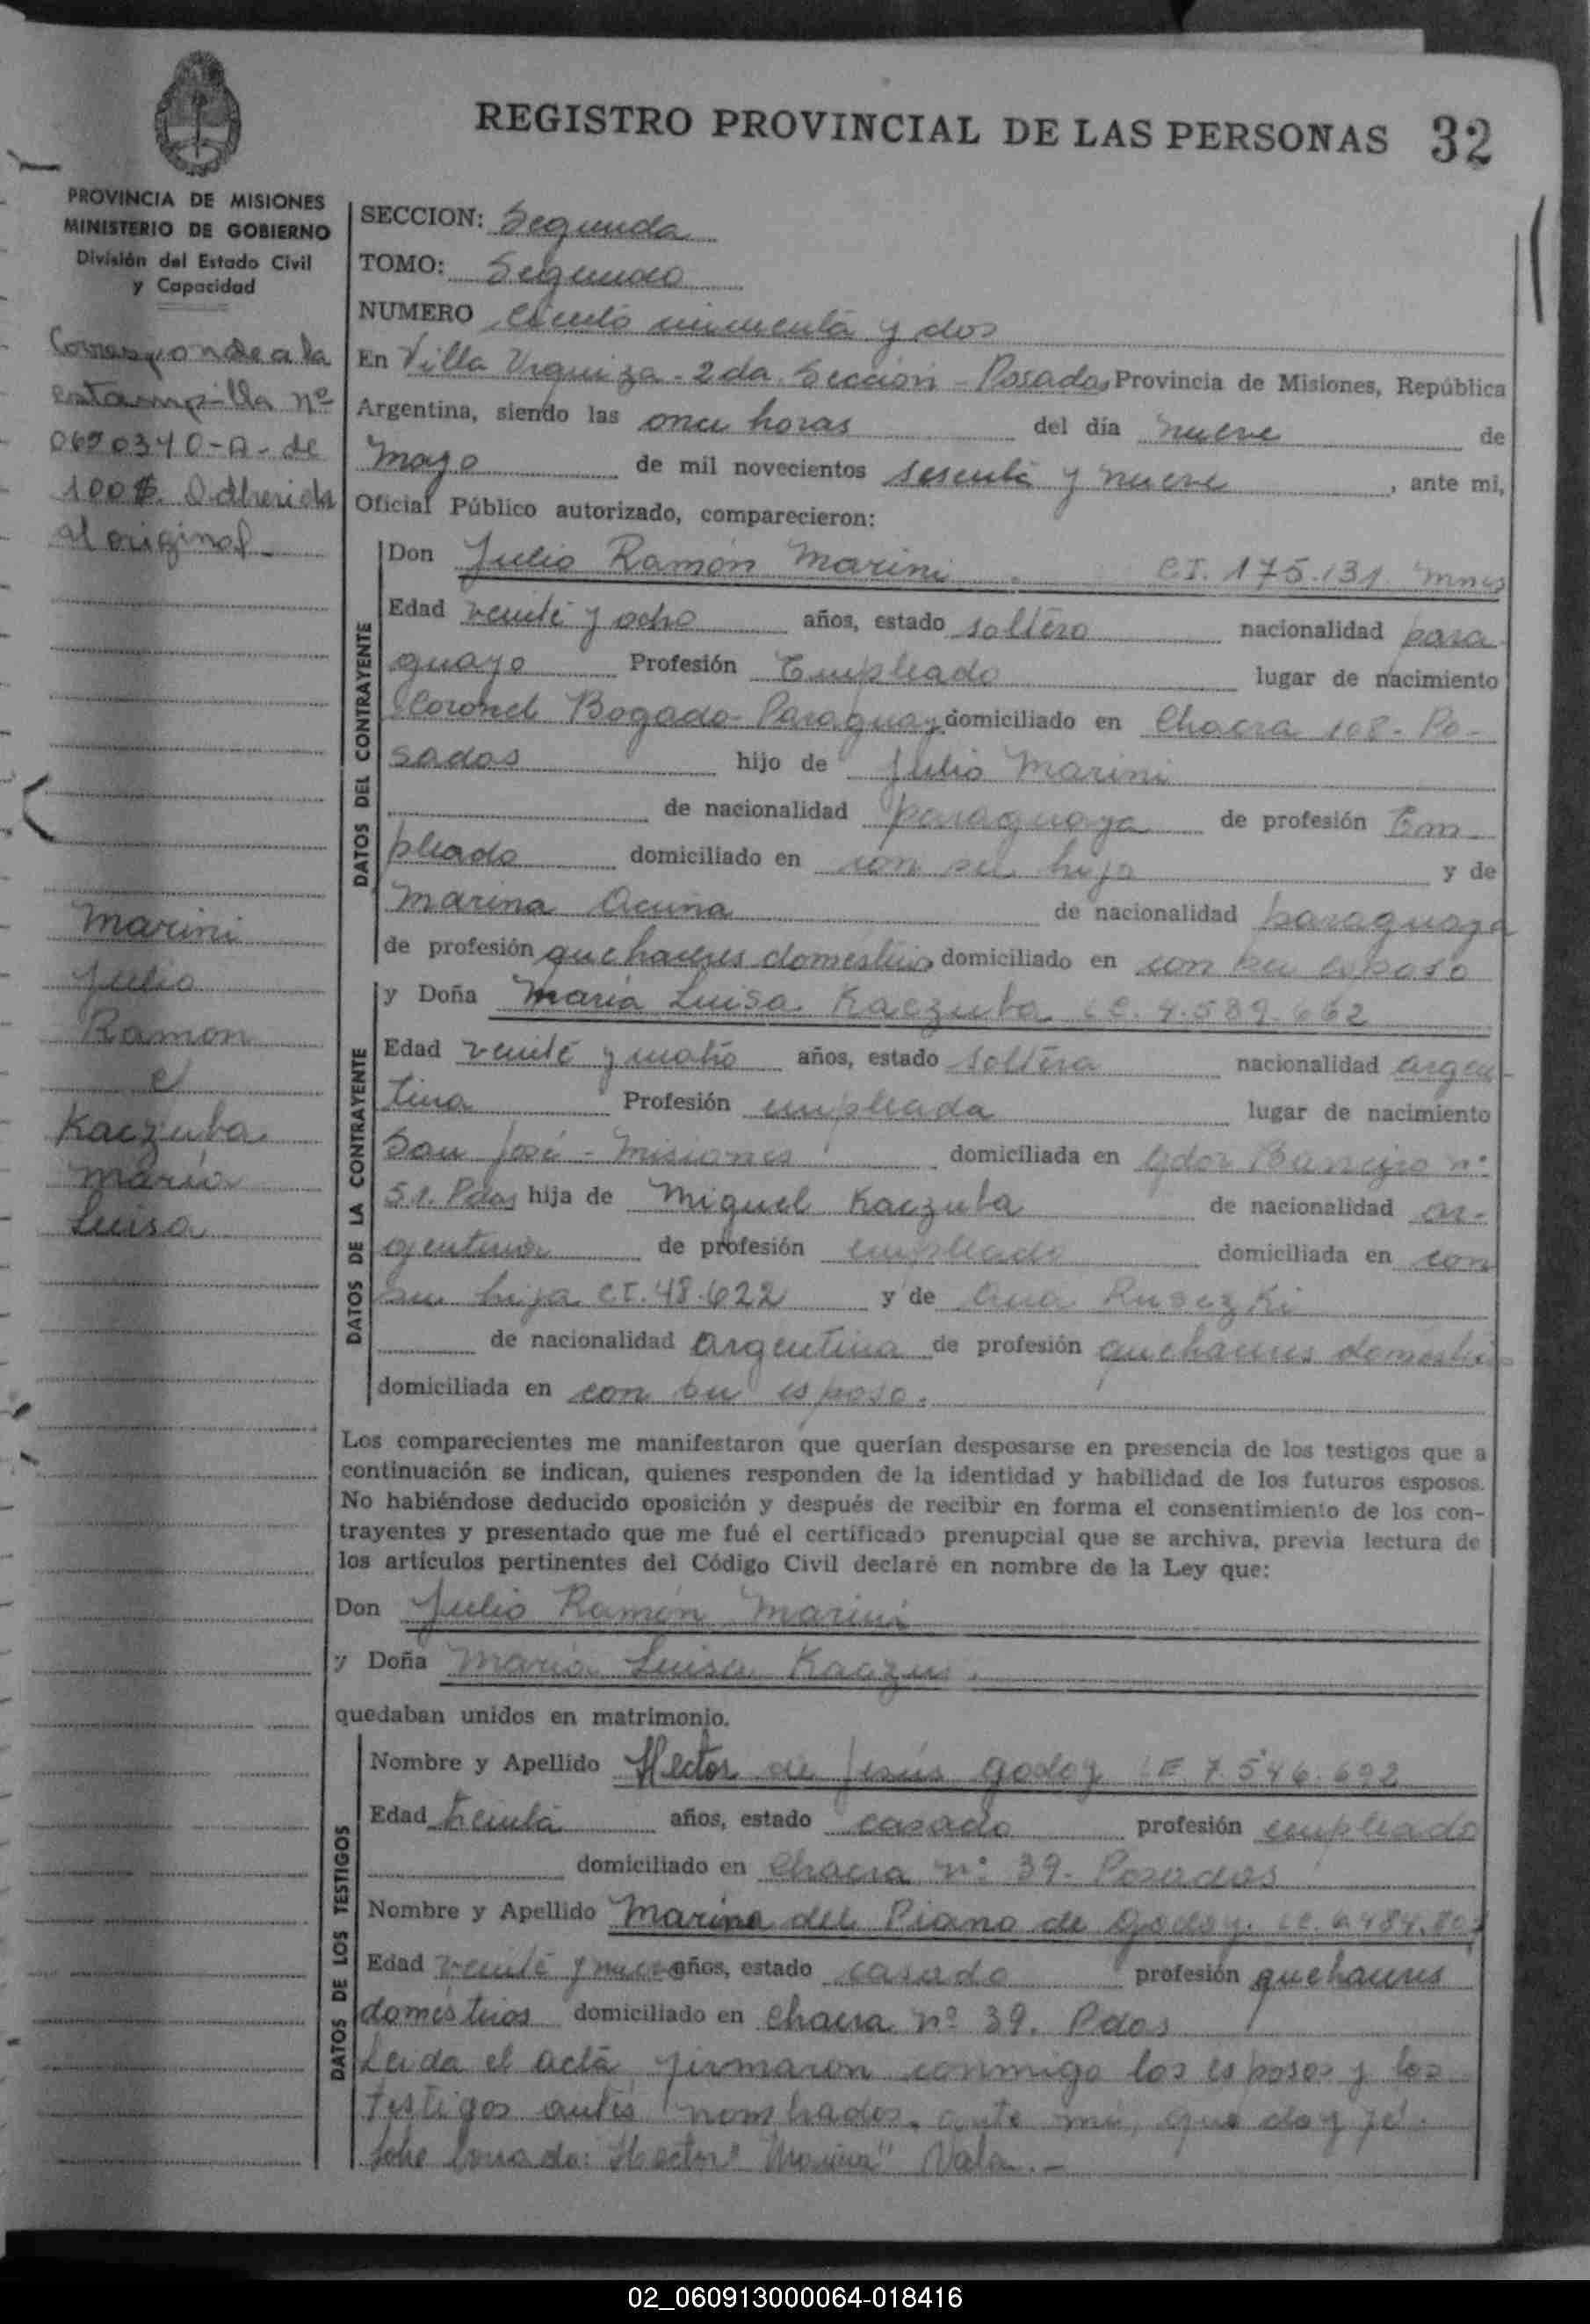 REGISTRO PROVINCIAL DE LAS PERSONAS 32
PROVINCIA DE MISIONES
MINISTERIO DE GOBIERNO
División del Estado Civil
y Capacidad
Corresponde a la
estampilla nº
0690340-A- de
100$. Adherida
al original
Marini
Julio
Ramon
e
Kaczuba
María
Luisa
SECCION: Segunda
TOMO: Segundo
NUMERO ciento cincuenta y dos
En Villa Urquiza - 2da. Sección - Posadas Provincia de Misiones, República
Argentina, siendo las once horas del día nueve de
Mayo de mil novecientos sesenta y nueve, ante mi,
Oficial Público autorizado, comparecieron:
DATOS DEL CONTRAYENTE
Don Julio Ramón Marini C.I. 175.131 Mnes
Edad veinte y ocho años, estado soltero nacionalidad para-
guayo Profesión Empleado lugar de nacimiento
Coronel Bogado - Paraguay domiciliado en Chacra 108 - Po-
sadas hijo de Julio Marini
de nacionalidad paraguaya de profesión Em
pleado domiciliado en con su hijo y de
Marina Acuña de nacionalidad paraguaya
de profesión quehaceres domesticos domiciliado en con su esposo
DATOS DE LA CONTRAYENTE
y Doña María Luisa Kaczuba LC. 4.589.662
Edad veinte y cuatro años, estado soltera nacionalidad argen-
tina Profesión empleada lugar de nacimiento
San José - Misiones domiciliada en Gdor Barreyro nº
51. Pdas hija de Miguel Kaczuba de nacionalidad ar-
gentina de profesión empleado domiciliada en con
su hija C.I. 48.622 y de Ana Rusezki
de nacionalidad argentina de profesión quehaceres domesticos
domiciliada en con su esposo.
Los comparecientes me manifestaron que querían desposarse en presencia de los testigos que a
continuación se indican, quienes responden de la identidad y habilidad de los futuros esposos.
No habiéndose deducido oposición y después de recibir en forma el consentimiento de los con-
trayentes y presentado que me fué el certificado prenupcial que se archiva, previa lectura de
los artículos pertinentes del Código Civil declaré en nombre de la Ley que:
Don Julio Ramón Marini
y Doña María Luisa Kaczu
quedaban unidos en matrimonio.
DATOS DE LOS TESTIGOS
Nombre y Apellido Hector de Jesús Godoy LE 7.546.692
Edad treinta años, estado casado profesión empleado
domiciliado en Chacra nº 39 - Posadas
Nombre y Apellido Marina del Piano de Godoy. LC. 6.484.80
Edad veinte y nueve años, estado casado profesión quehaceres
domésticos domiciliado en Chacra nº 39. Pdas
Leida el acta, firmaron conmigo los esposos y los
testigos antes nombrados, ante mi, que doy fé.
Sobre borrado: "Hector" "Marina" Vale.-
02_060913000064-018416